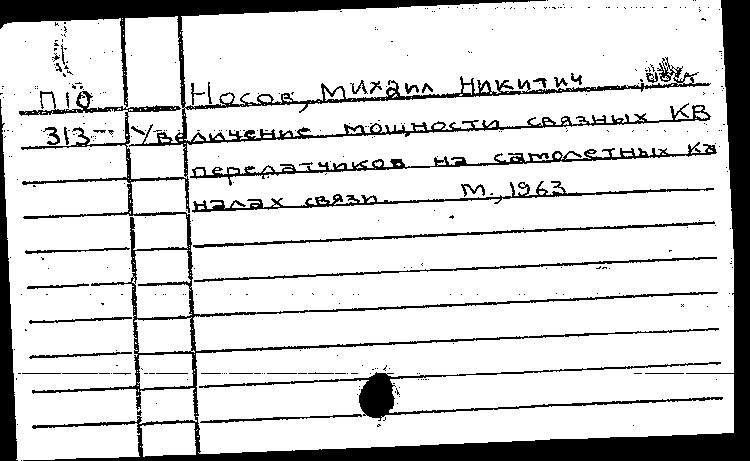 П10 Носов, Михаил Никитич
313 Увеличение мощности связных КВ
передатчиков на самолетных ка
налах связи. М., 1963